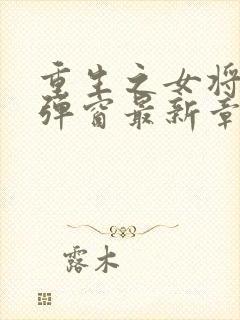 重生之女将
弹窗最新章
露木